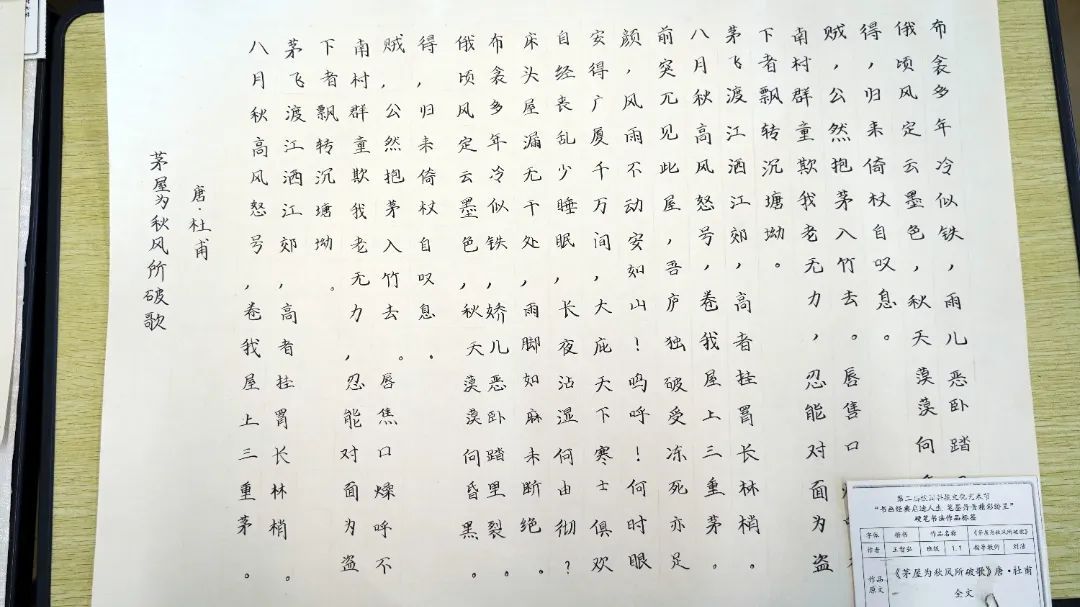 茅屋为秋风所破歌
唐·杜甫
八月秋高风怒号,卷我屋上三重茅。
茅飞渡江洒江郊,高者挂罥长林梢。
下者飘转沉塘坳。
南村群童欺我老无力,忍能对面为盗
贼,公然抱茅入竹去。唇焦口燥呼不
得,归来倚杖自叹息。
俄顷风定云墨色,秋天漠漠向昏黑。
布衾多年冷似铁,娇儿恶卧踏里裂。
床头屋漏无干处,雨脚如麻未断绝。
自经丧乱少睡眠,长夜沾湿何由彻?
安得广厦千万间,大庇天下寒士俱欢
颜,风雨不动安如山!呜呼!何时眼
前突兀见此屋,吾庐独破受冻死亦足
八月秋高风怒号,卷我屋上三重茅。
茅飞渡江洒江郊,高者挂罥长林梢。
下者飘转沉塘坳。
南村群童欺我老无力,忍能对面为盗
贼,公然抱茅入竹去。唇售口
得,归来倚杖自叹息。
俄顷风定云墨色,秋天漠漠向
布衾多年冷似铁,雨儿恶卧踏
硬笔书法作品标签
字体 楷书 作品名称 《茅屋为秋风所破歌》
作者 班级 1.1 指导教师 刘洁
作品原文 《茅屋为秋风所破歌》唐·杜甫
全文